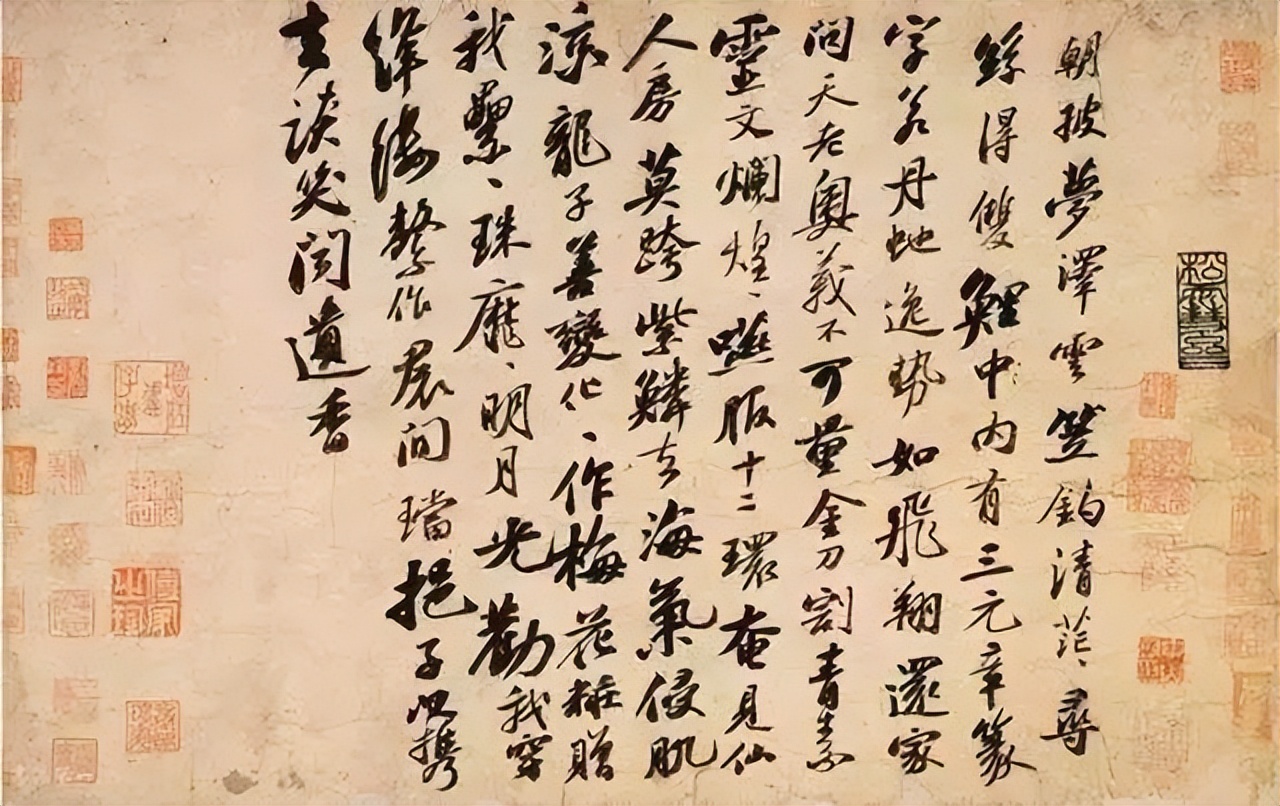 朝披夢澤雲笠釣清茫、尋
絲得雙鯉中內有三元章篆
字若丹虵逸勢如飛翔還家
問天老奧義不可量金刀割青素
靈文爛煌、嚥服十二環奄見仙
人房莫跨紫鱗去海氣侵肌
涼龍子善變化、作梅花粧贈
我纍、珠靡、明月光勸我穿
絳縷繫作裠間璫挹子以攜
去談笑聞遺香